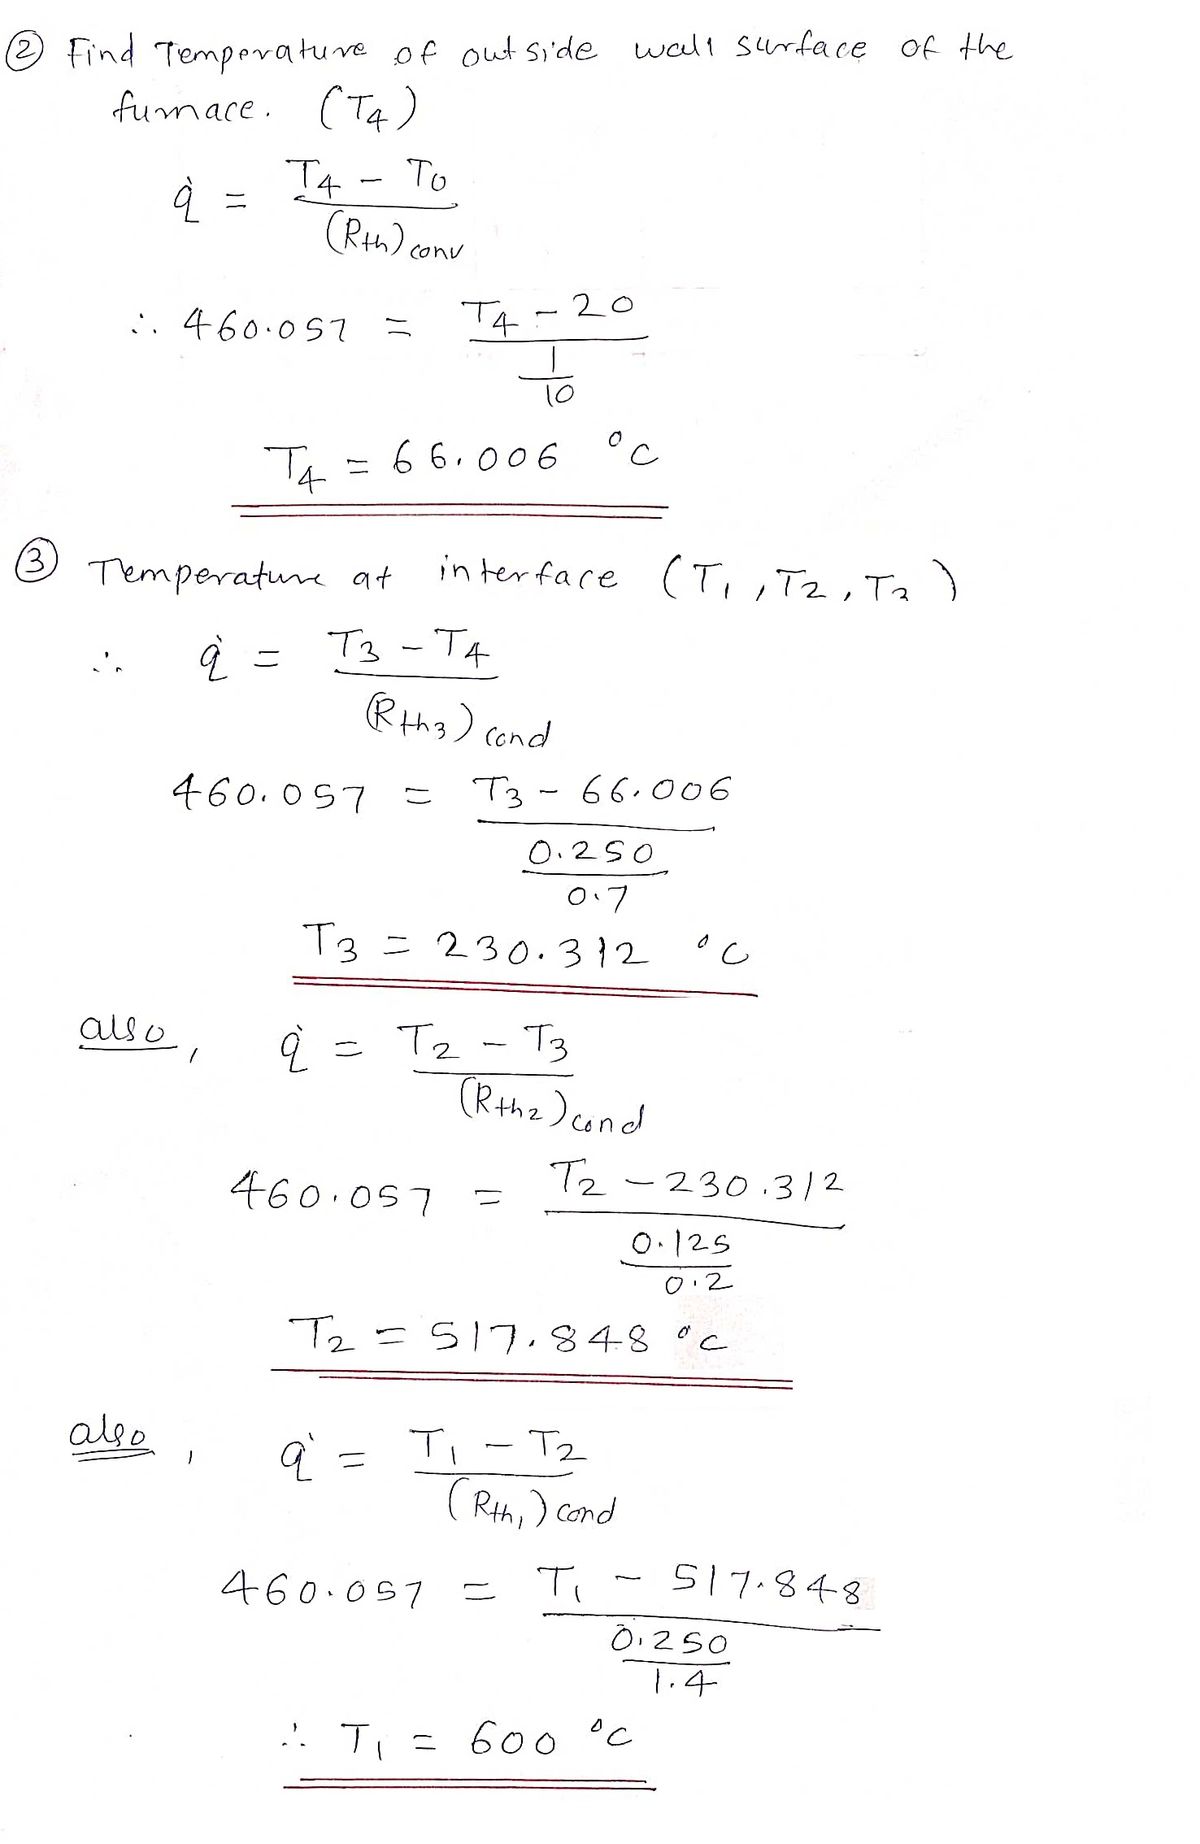 ② Find Temperature of outside wall surface of the
furnace. (T4)
q̇ = T4 - To
(Rth)conv
∴ 460.057 = T4 - 20
1
10
T4 = 66.006 °C
③ Temperature at interface (T1, T2, T3)
∴ q̇ = T3 - T4
(Rth3)cond
460.057 = T3 - 66.006
0.250
0.7
T3 = 230.312 °C
also, q̇ = T2 - T3
(Rth2)cond
460.057 = T2 - 230.312
0.125
0.2
T2 = 517.848 °C
also, q̇ = T1 - T2
(Rth1)cond
460.057 = T1 - 517.848
0.250
1.4
∴ T1 = 600 °C